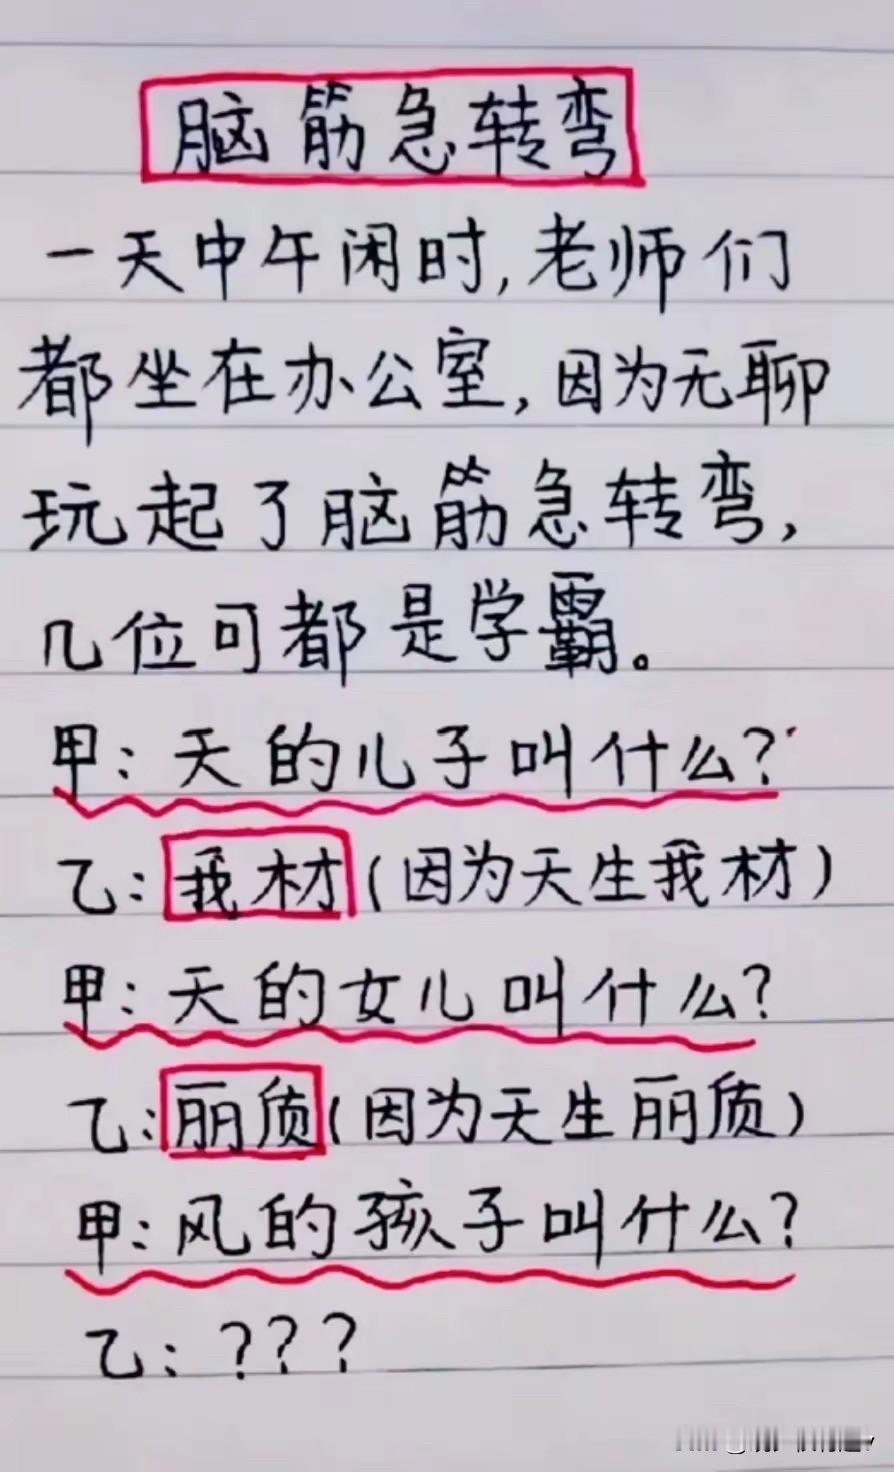 脑筋急转弯
一天中午闲时,老师们
都坐在办公室,因为无聊
玩起了脑筋急转弯,
几位可都是学霸。
甲:天的儿子叫什么?
乙:我材(因为天生我材)
甲:天的女儿叫什么?
乙:丽质(因为天生丽质)
甲:风的孩子叫什么?
乙:???